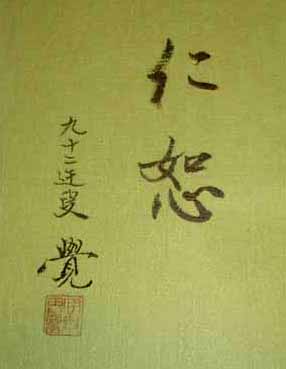 仁恕
九十二迂叟
覺